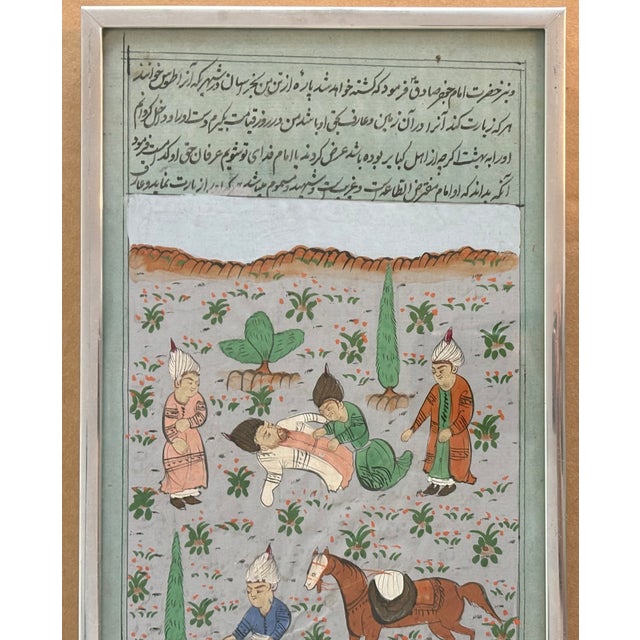 و نیز حضرت امام جعفر صادق ع فرمود که کشته خواهد شد پاره از تن من بخراسان در شهر که آنرا طوس خوانند
هر که زیارت کند آنرا در آن زمین و عارف بحق او باشد من در روز قیامت بگیرم دست او را و داخل کردانم
او را به بهشت اکر چه از اهل کبایر بوده باشد عرض کردند یا امام فدای تو شویم عرفان حق او کدامست فرمود
آنکه بداند که او امام مفترض الطاعه است و غریب و شهید و مسموم میباشد زیارت نماید و عارف